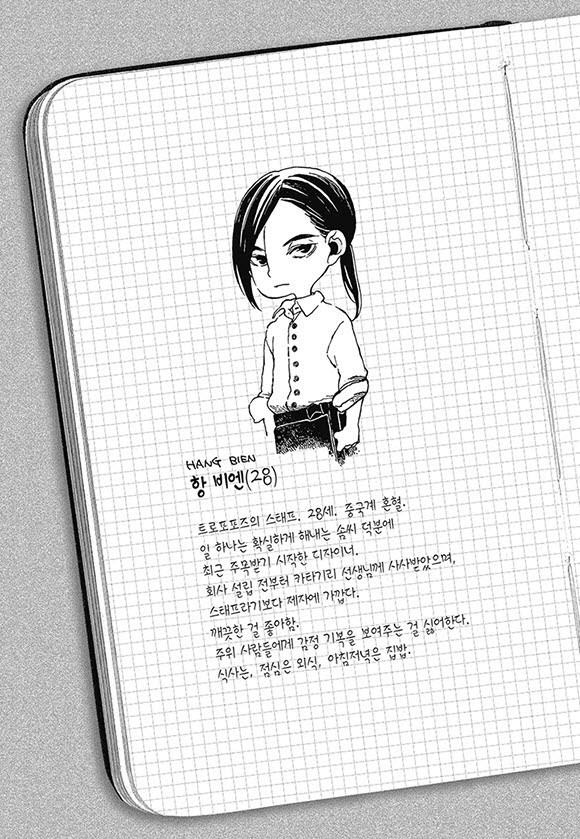 HANG BIEN
항 비엔(28)
트로포포즈의 스태프. 28세. 중국계 혼혈.
일 하나는 확실하게 해내는 솜씨 덕분에
최근 주목받기 시작한 디자이너.
회사 설립 전부터 카타기리 선생님께 사사받았으며,
스태프라기보다 제자에 가깝다.
깨끗한 걸 좋아함.
주위 사람들에게 감정 기복을 보여주는 걸 싫어한다.
식사는, 점심은 외식, 아침저녁은 집밥.